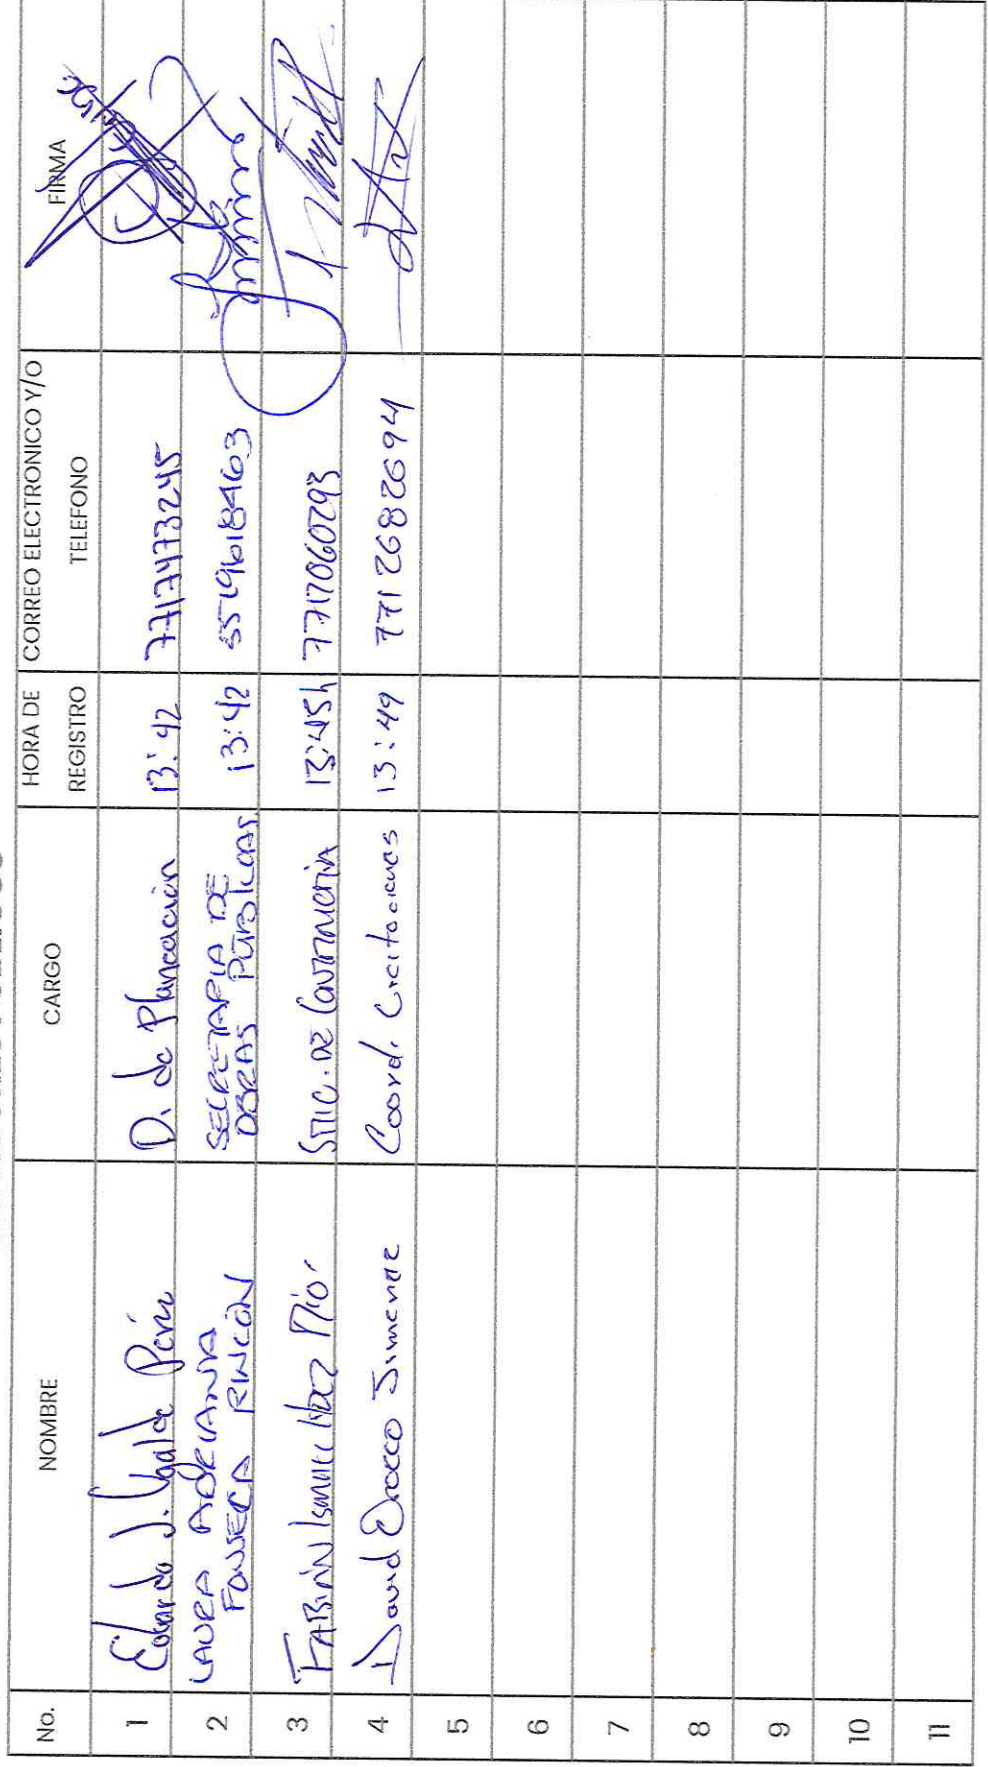 No. NOMBRE CARGO HORA DE REGISTRO CORREO ELECTRONICO Y/O TELEFONO FIRMA
1 Eduardo J. Ugalde D. de Planeación 13:42 7717473245
2 LAURA ADRIANA FONSECA RINCÓN SECRETARIA DE OBRAS PÚBLICAS 13:42 5519618463
3 FABIÁN Ismael 13:45h 7717060293
4 David Orozco Jimenez Coord. Licitaciones 13:49 7712682694
5
6
7
8
9
10
11